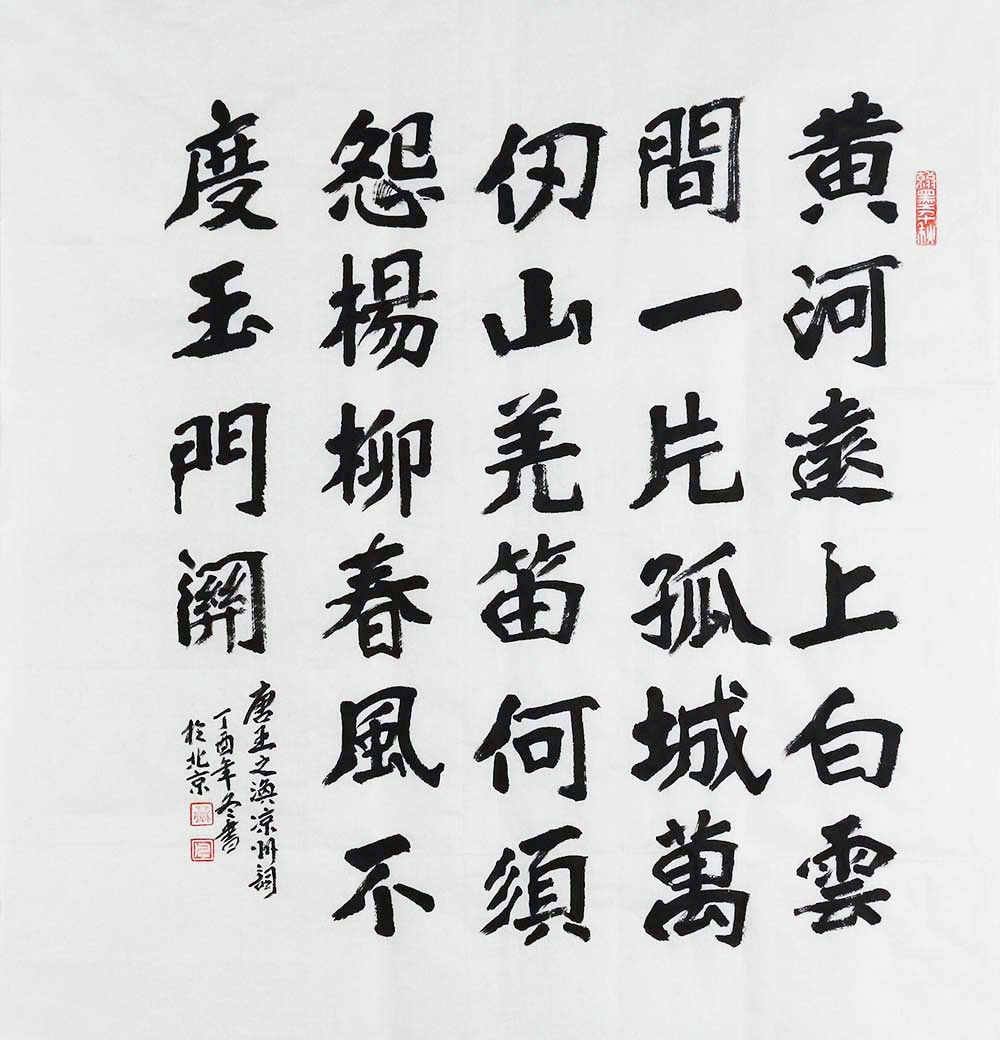 黄河遠上白雲
間一片孤城萬
仞山羌笛何須
怨楊柳春風不
度玉門關
唐王之渙凉州詞
丁酉年冬書
於北京
翰墨千秋